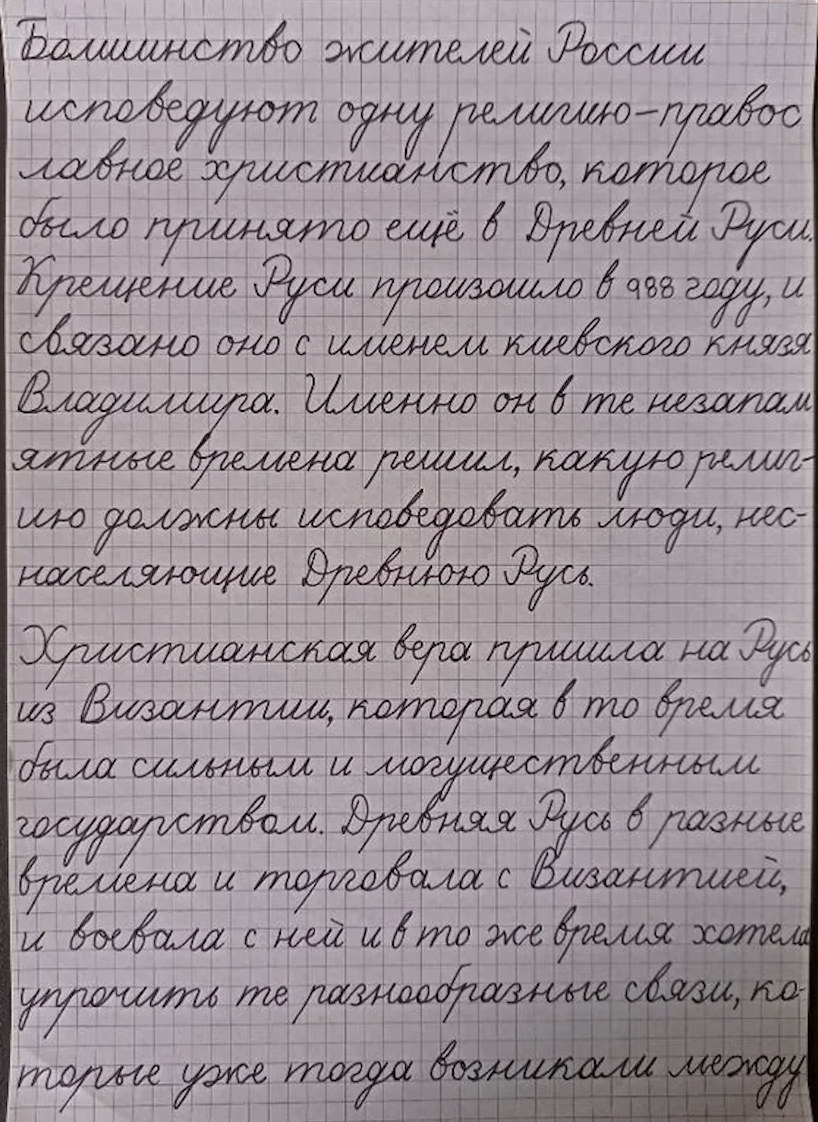 Болшинство жителей России
исповедуют одну религию-правос
лавное христианство, которое
было принято ещё в Древней Руси.
Крещение Руси произошло в 988 году, и
связано оно с именем киевского князя
Владимира. Именно он в те незапам
ятные времена решил, какую религ-
ию должны исповедовать люди, нес-
населяющие Древнюю Русь.
Христианская вера пришла на Русь
из Византии, которая в то время
была сильным и могущественным
государством. Древняя Русь в разные
времена и торговала с Византией,
и воевала с ней и в то же время хотела
упрочить те разнообразные связи, ко-
торые уже тогда возникали между